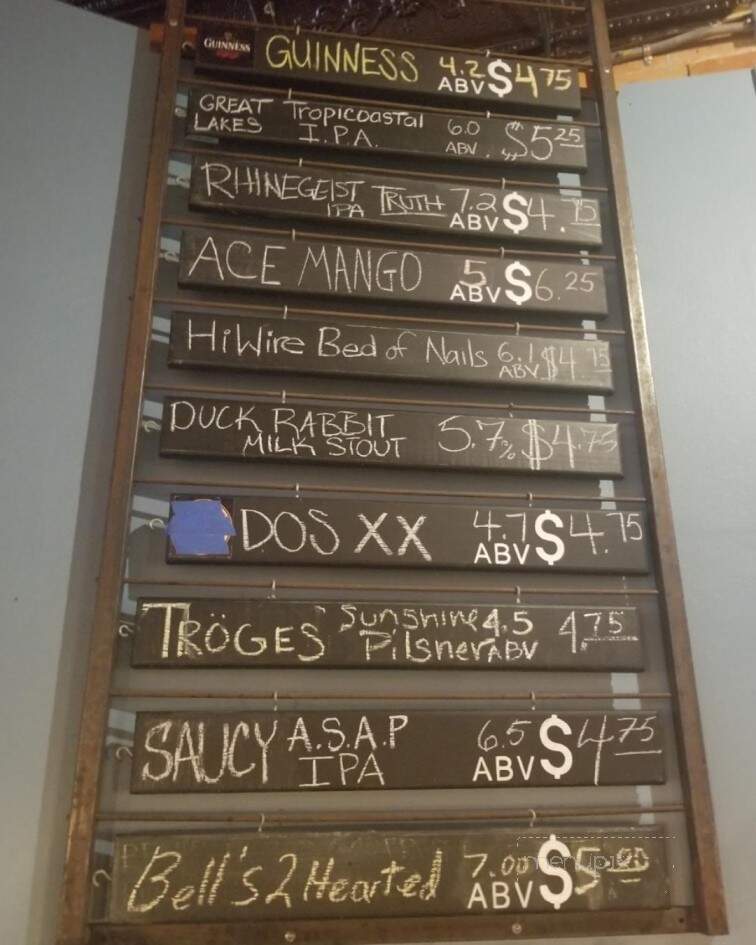 GUINNESS GUINNESS 4.2 ABV $4.75
GREAT LAKES Tropicoastal I.P.A. 6.0 ABV. $5.25
RHINEGEIST TRUTH IPA 7.2 ABV $4.75
ACE MANGO 5 ABV $6.25
HiWire Bed of Nails 6.1 ABV $4.75
DUCK RABBIT MILK STOUT 5.7% $4.75
DOS XX 4.7 ABV $4.75
TRÖGES Sunshine Pilsner 4.5 ABV 4.75
SAUCY A.S.A.P IPA 6.5 ABV $4.75
Bell's 2 Hearted 7.00 ABV $5.00